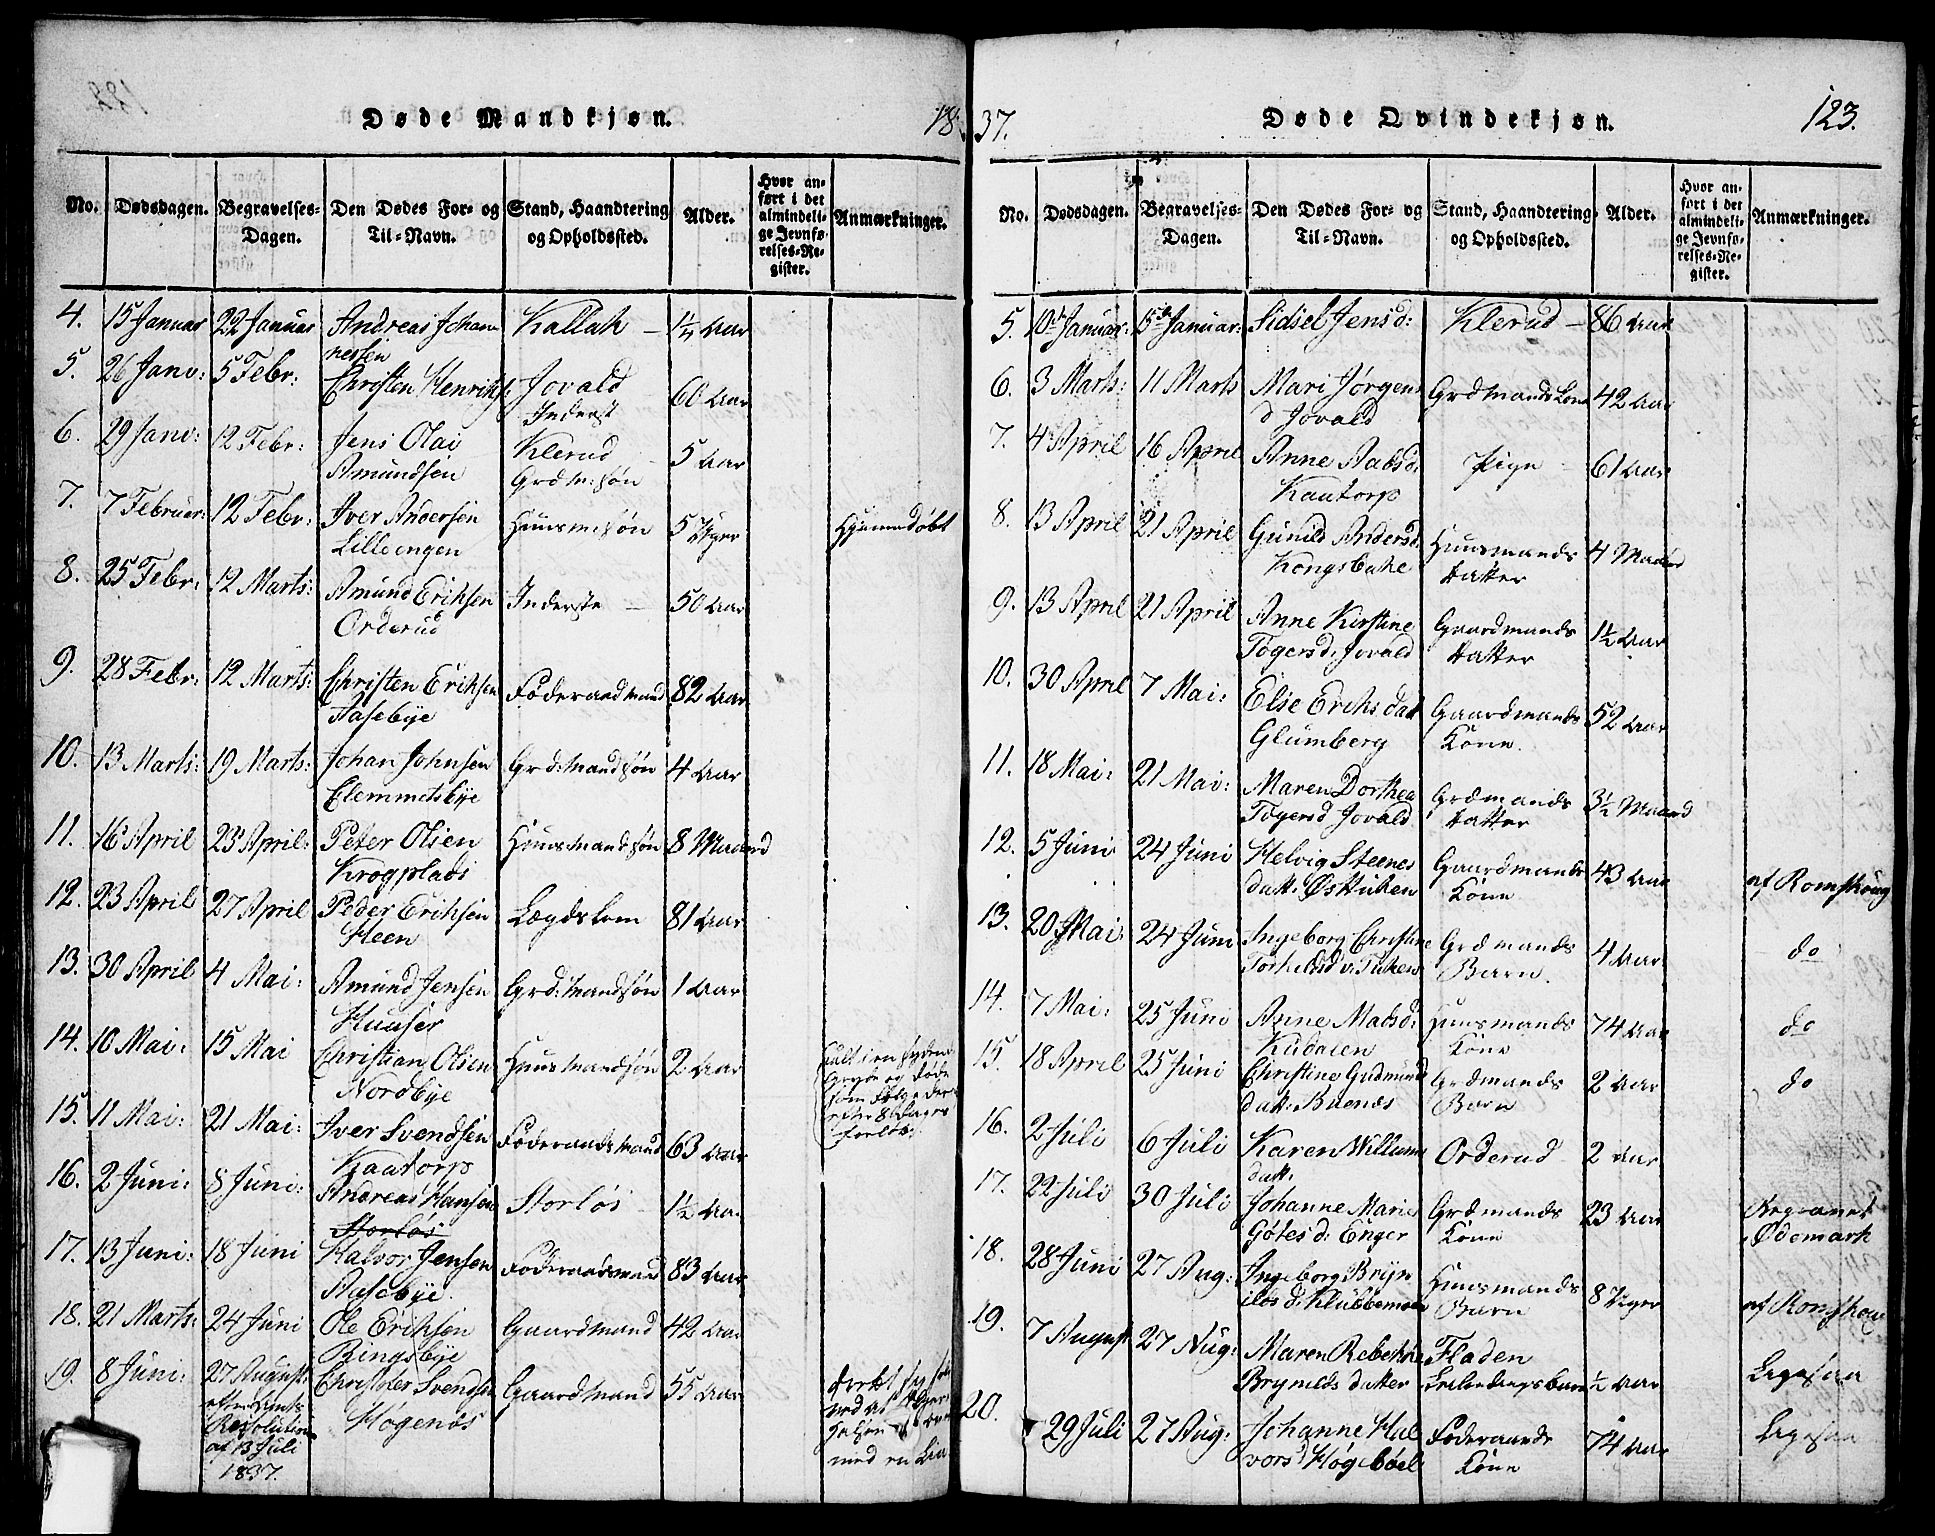 Døde Mandkjøn. 18
No. Dødsdagen. Begravelses-Dagen. Den Dødes For- og Til-Navn. Stand, Haandtering og Opholdssted. Alder. Hvor anført i det almindelige Jevnførelses-Register. Anmærkninger.
4. 15 Januar 22 Januar Andreas Johan Kallak 1/4 Aar
nesen
5. 26 Janv: 5 Febr: Christen Henriks: Jovald 60 Aar
Inderst
6. 29 Janv: 12 Febr: Jens Olai Klerud 5 Aar
Amundsen Grdm: søn
7. 7 Februar: 12 Febr: Iver Andersen Huusm: søn 5 Uger Hjemmedøbt
Lilleengen
8. 25 Febr: 12 Marts: Amund Eriksen Inderste 50 Aar
Orderud
9. 28 Febr: 12 Marts: Christen Eriksen Føderaadmand 82 Aar
Aasebye
10. 13 Marts: 19 Marts: Johan Johnsen Grd: mandsøn 4 Aar
Clemmetsbye
11. 16 April 23 April: Peter Olsen Huusmandsøn 8 Maaned
Krogplads
12. 23 April 27 April Peder Eriksen Lægdslem 81 Aar
Steen
13. 30 April 4 Mai: Amund Jensen Grd: mandsøn 1 Aar
Huuser
14. 10 Mai: 15 Mai Christian Olsen Huusmandsøn 2 Aar
Nordbye
Faldt i en
Gryde og døde
som Følge der
efter 8 Dages
Forløb.
15. 11 Mai: 21 Mai: Iver Svendsen Føderaadsmand 63 Aar
Kaatorp
16. 2 Juni: 8 Juni: Andreas Hansen Storløs 1½ Aar
Storløs
17. 13 Juni: 18 Juni Halvor Jensen Føderaadsmand 83 Aar
Aasebye.
18. 21 Marts: 24 Juni Ole Eriksen Gaardmand 42 Aar
Ringsbye
19. 8 Juni: 27 August: Christofer Svendsen Gaardmand 55 Aar
efter Amts Høgenæs
Resolution
af 13 Juli
1837.
37. Døde Qvindekjøn. 123.
No. Dødsdagen. Begravelses-Dagen. Den Dødes For- og Til-Navn. Stand, Haandtering og Opholdssted. Alder. Hvor anført i det almindelige Jevnførelses-Register. Anmærkninger.
5. 10 Januar: 15 Januar: Sidsel Jensd: Klerud 86 Aar
6. 3 Marts: 11 Marts Mari Jørgens Grdmands Kone 42 Aar
d Jovald
7. 4 April 16 April Anne Aabsd: Pige 61 Aar
Kaatorp
8. 13 April 21 April Gunild Andersd. Huusmands 4 Maaned
Kongsbakke Datter
9. 13 April 21 April Anne Kirstine Gaardmands 1½ Aar
Togersd: Jovald Datter
10. 30 April 7 Mai: Else Eriks datt Gaardmands 52 Aar
Glumberg Kone.
11. 18 Mai: 21 Mai: Maren Dorthea Grdmands 3½ Maaned
Togersd Jovald Datter
12. 5 Juni 24 Juni Helvig Steenes Gaardmands 43 Aar af Romskoug
datt: Østtuken Kone
13. 20 Mai: 24 Juni Ingeborg Christine Grdmands 4 Aar do
Torkelsd v: Tuken Barn.
14. 7 Mai: 25 Juni Anne Madsd: Huusmands 74 Aar do
Kudalen Kone
15. 18 April 25 Juni Christine Gudmund Grdmands 2 Aar do
datt: Buenæs Barn
16. 2 Juli 6 Juli Karen Willums Orderud 2 Aar
datt:
17. 22 Juli 30 Juli Johanne Marie Grdmands 23 Aar
Gøtesd: Enger Kone Ødemark
18. 28 Juni 27 Aug: Ingeborg Bryn Huusmands 8 Uger af Romskoug
ilds d: Klubbemoen Barn
19. 7 August 27 Aug: Maren Rebekke Fladen ½ Aar Ligesaa
Brynilds datter
20. 29 Juli 27 Aug: Johanne Hal Føderaads 74 Aar Ligesaa
vors d Høgbøel Kone